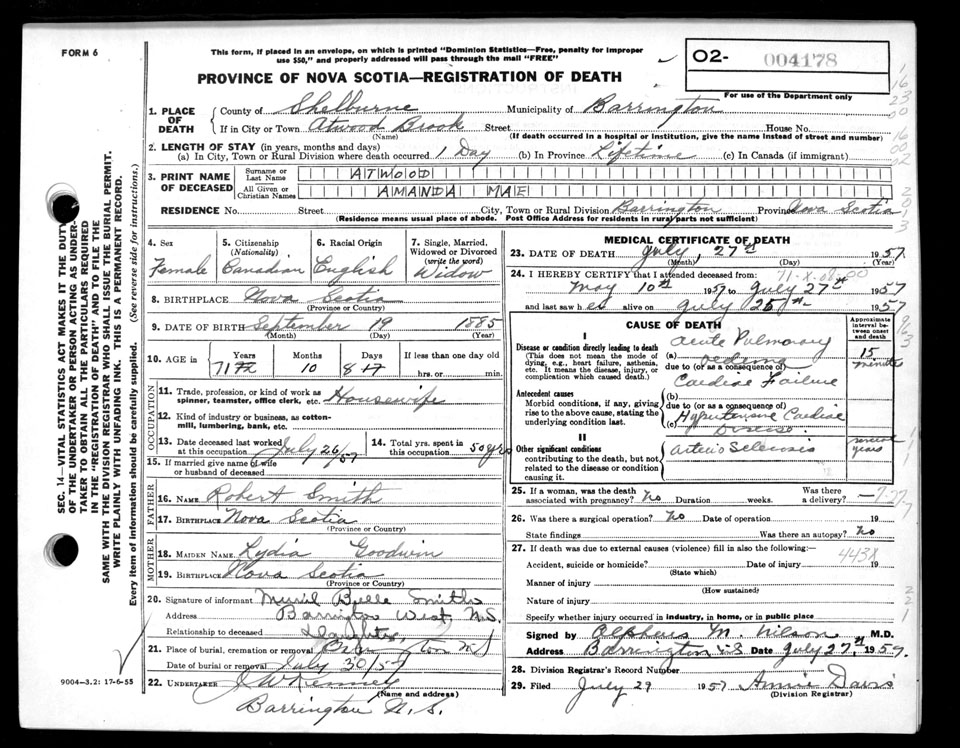 FORM 6
This form, if placed in an envelope, on which is printed "Dominion Statistics—Free, penalty for improper
use $50," and properly addressed will pass through the mail "FREE"
PROVINCE OF NOVA SCOTIA—REGISTRATION OF DEATH
O2- 004178
For use of the Department only
1. PLACE OF DEATH
County of Shelburne Municipality of Barrington
If in City or Town Atwood Brook Street House No.
(Name) (If death occurred in a hospital or institution, give the name instead of street and number)
2. LENGTH OF STAY (in years, months and days)
(a) In City, Town or Rural Division where death occurred 1 Day (b) In Province Lifetime (c) In Canada (if immigrant)
3. PRINT NAME OF DECEASED
Surname or Last Name ATWOOD
All Given or Christian Names AMANDA MAE
RESIDENCE No. Street City, Town or Rural Division Barrington Province Nova Scotia
(Residence means usual place of abode. Post Office Address for residents in rural parts not sufficient)
4. Sex Female
5. Citizenship (Nationality) Canadian
6. Racial Origin English
7. Single, Married, Widowed or Divorced (write the word) Widow
8. BIRTHPLACE Nova Scotia
(Province or Country)
9. DATE OF BIRTH September 19 1885
(Month) (Day) (Year)
10. AGE in Years 71 Months 10 Days 8 If less than one day old
hrs. or min.
OCCUPATION
11. Trade, profession, or kind of work as
spinner, teamster, office clerk, etc. Housewife
12. Kind of industry or business, as cotton-
mill, lumbering, bank, etc.
13. Date deceased last worked at this occupation July 26/57
14. Total yrs. spent in this occupation 50 yrs
15. If married give name of wife
or husband of deceased
FATHER
16. NAME Robert Smith
17. BIRTHPLACE Nova Scotia
(Province or Country)
MOTHER
18. MAIDEN NAME Lydia Goodwin
19. BIRTHPLACE Nova Scotia
(Province or Country)
20. Signature of informant Muriel Belle Smith
Address Barrington West, N.S.
Relationship to deceased Daughter
21. Place of burial, cremation or removal
Date of burial or removal July 30/57
22. UNDERTAKER J W Kenney
(Name and address)
Barrington N.S.
9004-3.2: 17-6-55
MEDICAL CERTIFICATE OF DEATH
23. DATE OF DEATH July, 27th 1957
(Month) (Day) (Year)
24. I HEREBY CERTIFY that I attended deceased from:
May 10th 1957 to July 27th 1957
and last saw her on July 26th 1957
CAUSE OF DEATH
Approximate interval between onset and death
I
Disease or condition directly leading to death
(This does not mean the mode of
dying, e.g., heart failure, asthenia,
etc. It means the disease, injury, or
complication which caused death.)
(a) Acute Pulmonary oedema 15 minutes
due to (or as a consequence of)
Cardiac Failure
Antecedent causes
Morbid conditions, if any, giving
rise to the above cause, stating the
underlying condition last.
(b)
due to (or as a consequence of)
(c) Hypertensive Cardiac Disease
II
Other significant conditions
contributing to the death, but not
related to the disease or condition
causing it.
Arterio Sclerosis several years
25. If a woman, was the death associated with pregnancy? No Duration weeks. Was there a delivery? —
26. Was there a surgical operation? No Date of operation 19
State findings Was there an autopsy? No
27. If death was due to external causes (violence) fill in also the following:— 443X
Accident, suicide or homicide? Date of injury 19
(State which)
Manner of injury
(How sustained)
Nature of injury
Specify whether injury occurred in industry, in home, or in public place
Signed by Alpheus M. Wilson M.D.
Address Barrington N.S. Date July 27th 1957.
28. Division Registrar's Record Number
29. Filed July 29 1957 Annie Davis
(Division Registrar)
SEC. 14—VITAL STATISTICS ACT MAKES IT THE DUTY
OF THE UNDERTAKER OR PERSON ACTING AS UNDER-
TAKER TO OBTAIN ALL THE PARTICULARS REQUIRED
IN THE "REGISTRATION OF DEATH" AND TO FILE THE
SAME WITH THE DIVISION REGISTRAR WHO SHALL ISSUE THE BURIAL PERMIT.
WRITE PLAINLY WITH UNFADING INK. THIS IS A PERMANENT RECORD.
Every item of information should be carefully supplied. (See reverse side for instructions.)